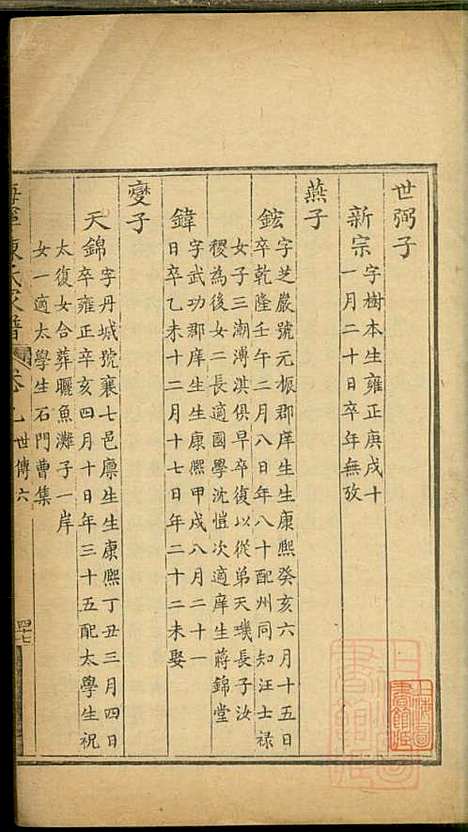 世弼子
新宗
字樹本生雍正庚戌十
一月二十日卒年無攷
燕子
鉉
字芝嚴號元振郡庠生生康熙癸亥六月十五日
卒乾隆壬午二月八日年八十配州同知汪士祿
女子三潮溥淇俱早卒復以從弟天璣長子汝
稷為後女二長適國學沈愷次適庠生蔣錦堂
鍏
字武功郡庠生生康熙甲戌八月二十一
日卒乙未十二月十七日年二十二未娶
變子
天錦
字丹城號襄七邑廪生生康熙丁丑三月四日
卒雍正辛亥四月十日年三十五配太學生祝
太復女合葬曬魚灘子一岸
女一適太學生石門曹集
海寧陳氏家譜 卷九 世傳六 四十七